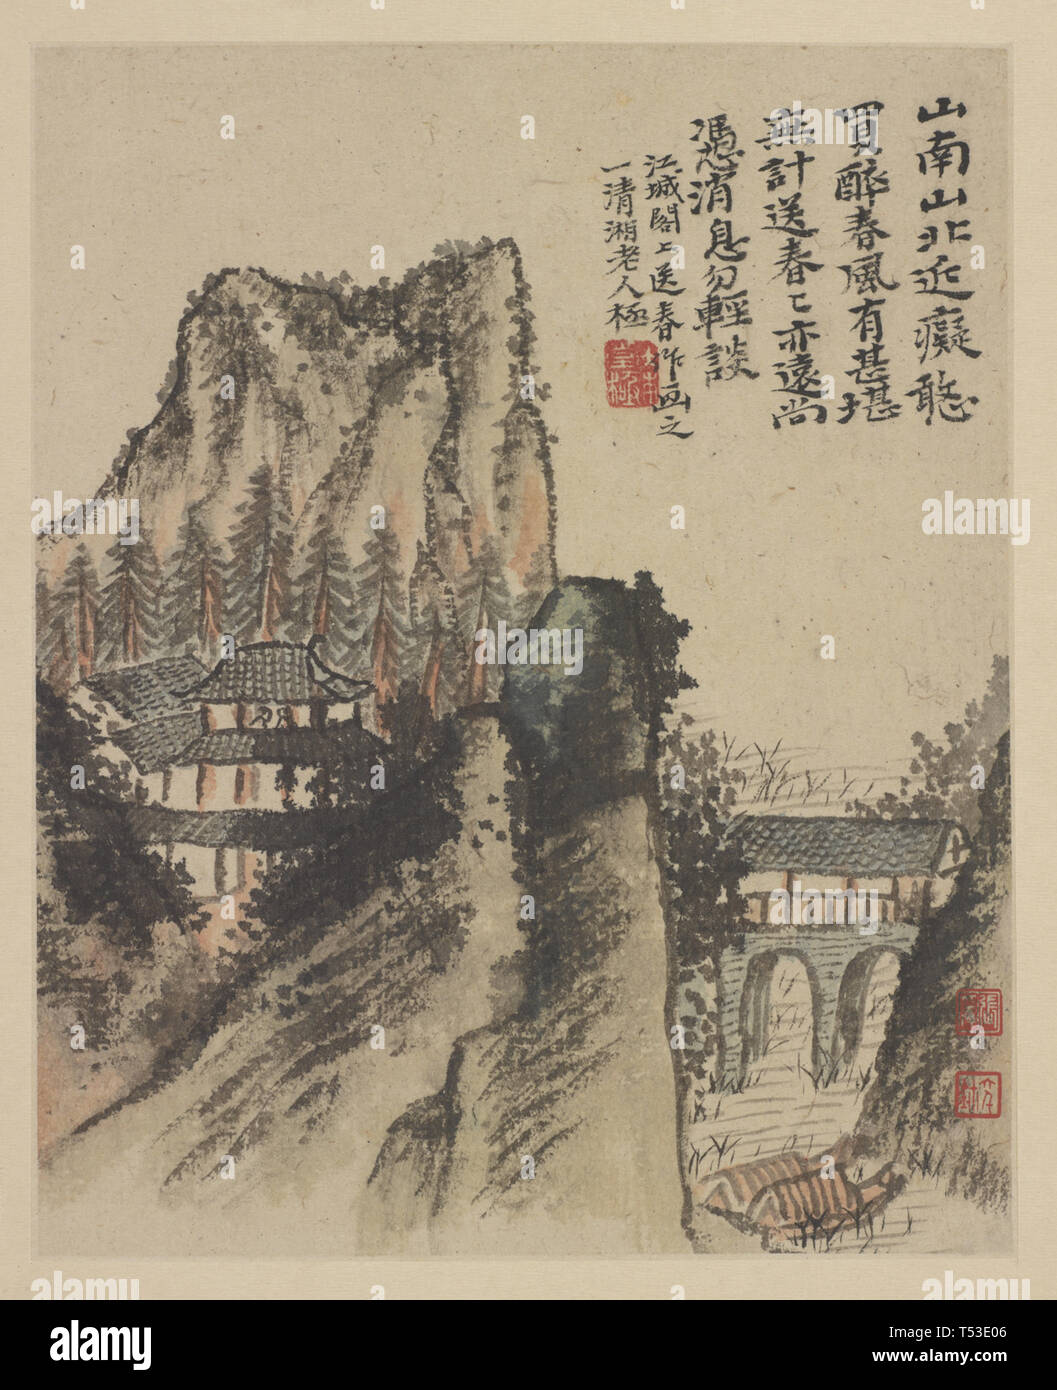 山南山北近癡憨
買醉春風有甚堪
無計送春〻亦遠尚
憑消息勿輕談
江城閣上送春作畫之
一清湘老人極
alamy
alamy
alamy
alamy
Image ID: T53E06
www.alamy.com